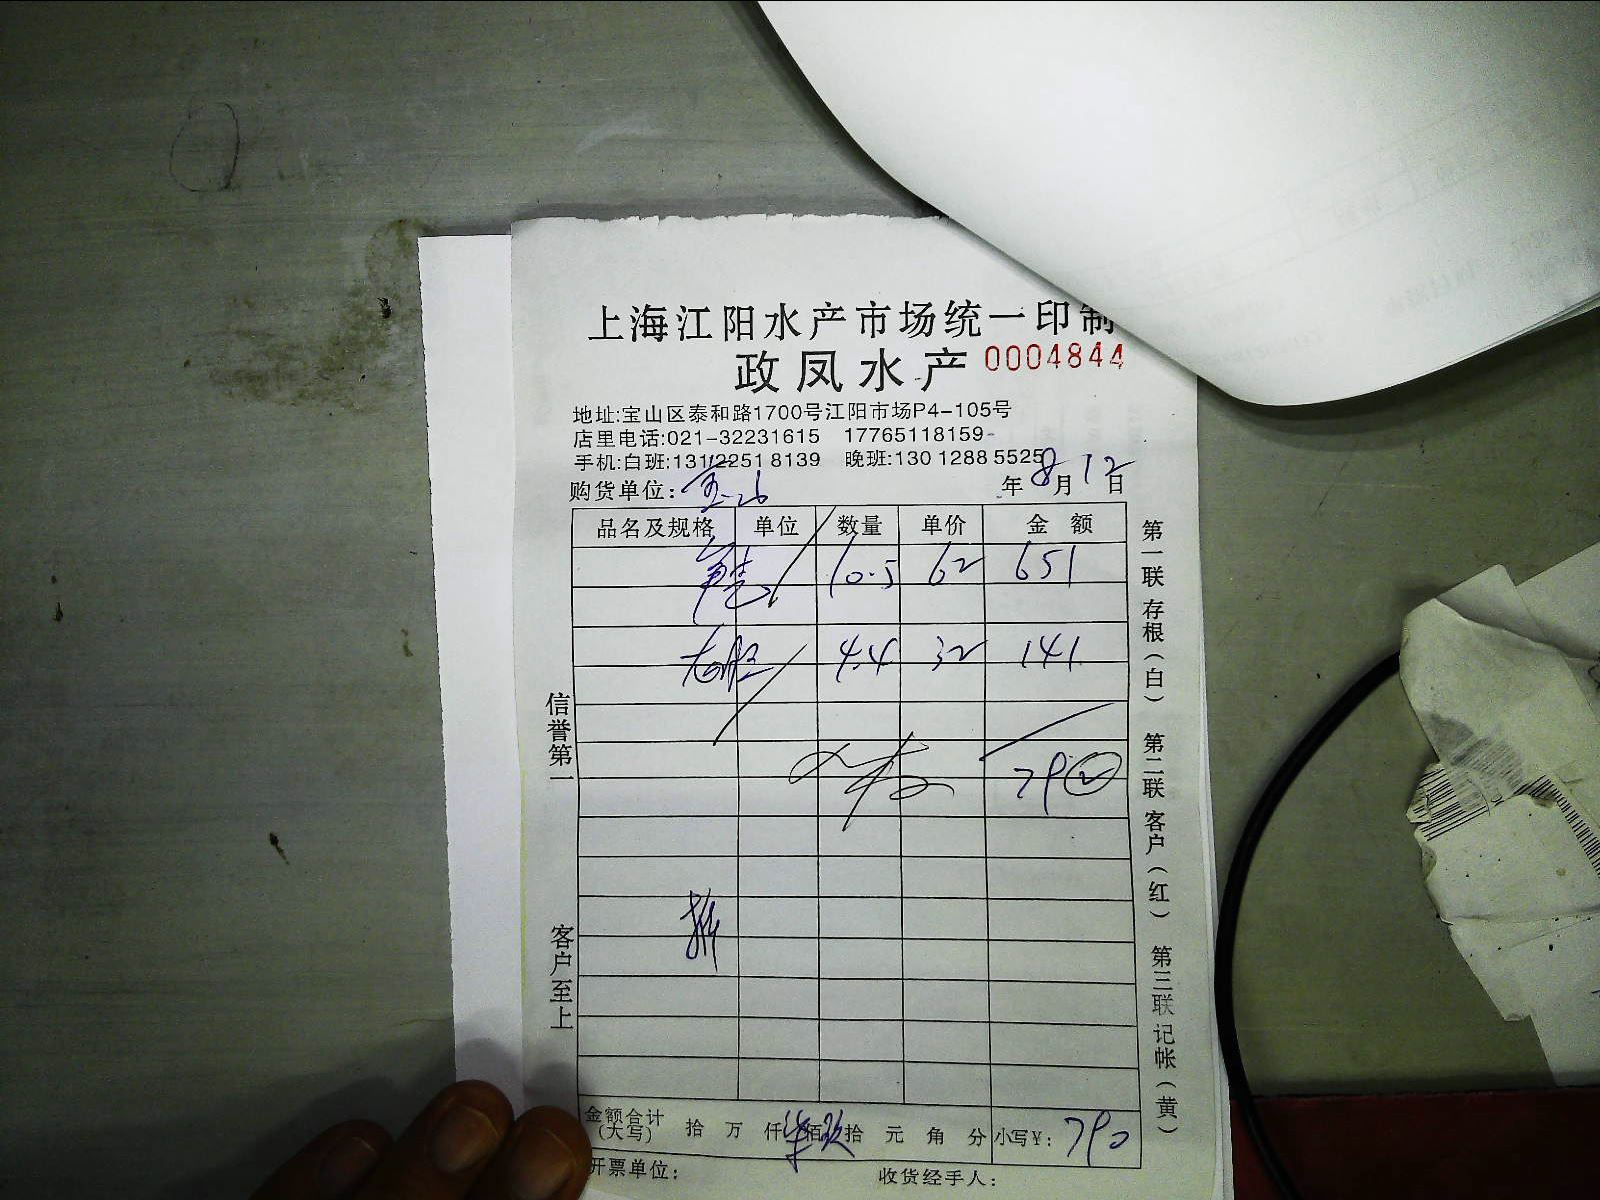 上海江阳水产市场统一印制
政凤水产 0004844
地址:宝山区泰和路1700号江阳市场P4-105号
店里电话:021-32231615 17765118159
手机:白班:13122518139 晚班:13012885525
购货单位: 年8月12日
品名及规格 单位 数量 单价 金额
10.5 62 651
4.4 32 141
790
金额合计(大写) 拾 万 仟 佰 玖 拾 元 角 分 小写¥: 790
开票单位: 收货经手人:
信誉第一
客户至上
第一联存根(白) 第二联客户(红) 第三联记帐(黄)